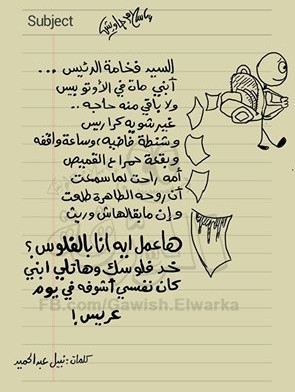 Subject
إسلام جاويش
السيد فخامة الرئيس ...
أبني مات في الأوتوبيس
ولا باقي منه حاجه ..
غير شوية كراريس
وشنطة فاضيه وساعة واقفه
وبقعة حمرا ع القميص
أمه راحت لما سمعت
أن روحه الطاهرة طلعت
وإن مابقالهاش وريث
هاعمل ايه انا بالفلوس ؟
خد فلوسك وهاتلي ابني
كان نفسي أشوفه في يوم
عريس !
FB.com/Gawish.Elwarka
كلمات : نبيل عبد الحميد